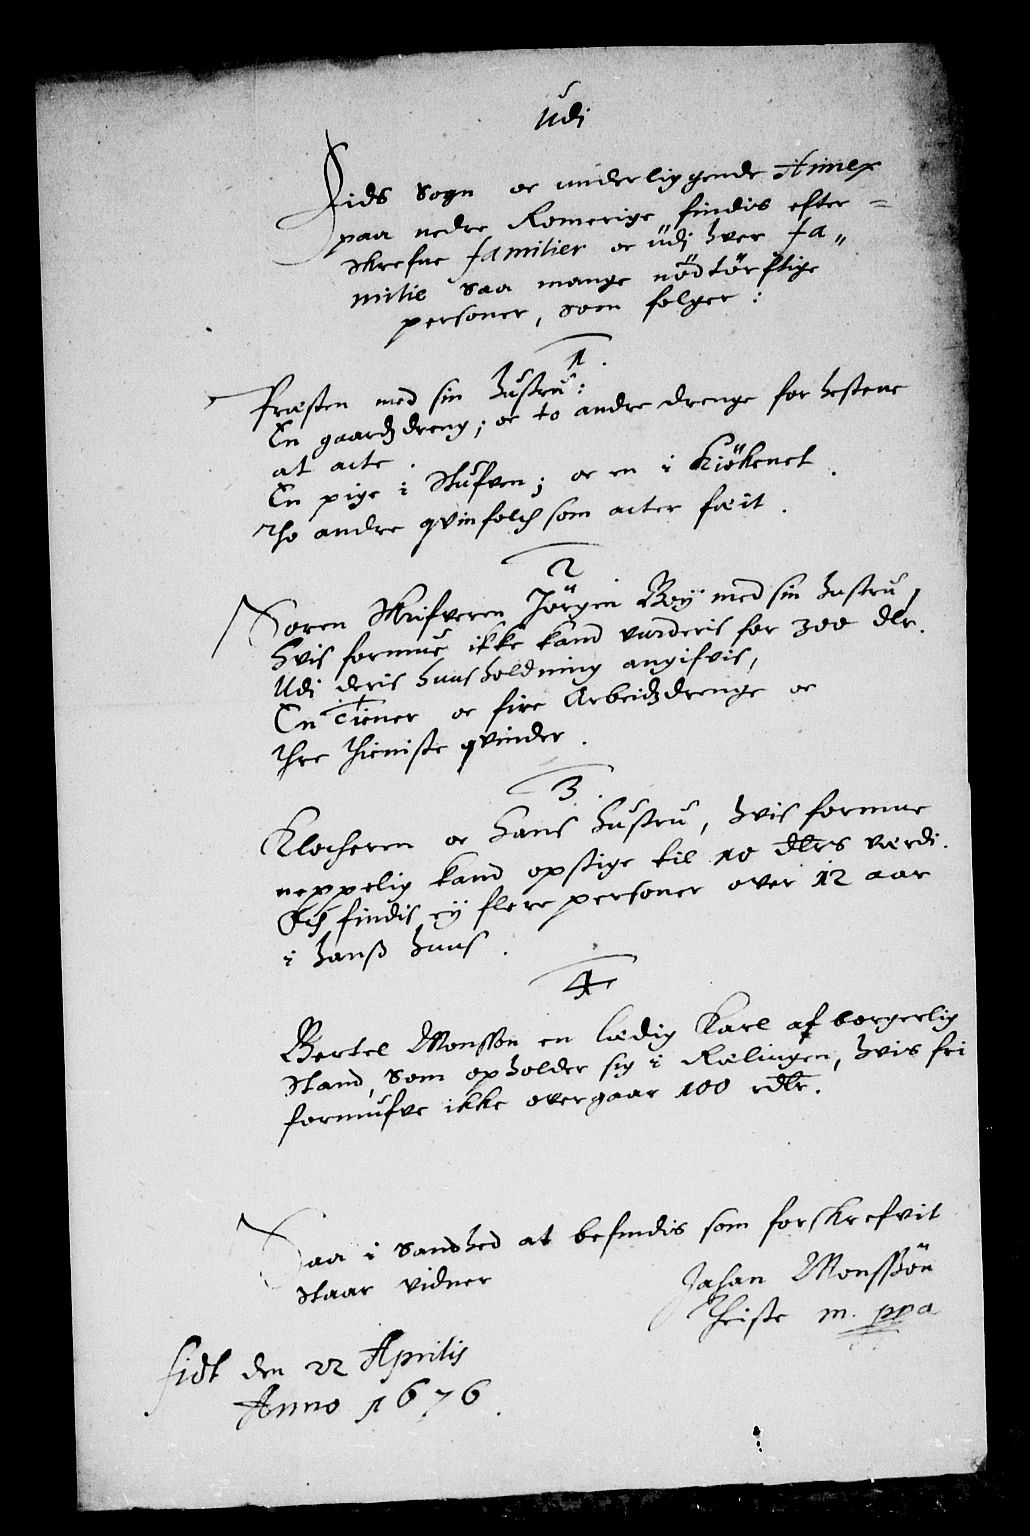 Udi
Fids Sogn oc underliggende Annex
paa nedre Romerige findis efter =
skrefne familier oc üdj hver fa„
milie saa mange nödtörftige
personer, som folger :
1.
Præsten med sin hustru :
En gaardzdreng ; oc to andre drenge for hestene
at acte .
En pige i Stufven ; oc en i Kiökenet .
Tho andre qvinfolch som acter fæit .
2
Soren Skrifveren Jörgen Boÿ med sin hostru,
hvis formue ikke kand vurderis for 300 dlr.
Udi deris huusholdning angifvis,
En Tiener oc fire Arbeidzdrenge oc
thre thieniste qvinder .
3.
Klocheren oc hans hustru, hvis formue
neppelig kand opstige til 10 dlrs værdi.
Och findis eÿ flere personer over 12 aar
i hanß huus .
4
Bertel Monssøn en lædig Karl af borgerlig
stand, som opholder sig i Rælingen, hvis fri
formufve ikke overgaar 100 rdlr.
Saa i Sandhed at befindis som forskrefvit
staar vidner
Johan Monssön
Theiste m. ppa
fidt den 22 Aprilis
Anno 1676.